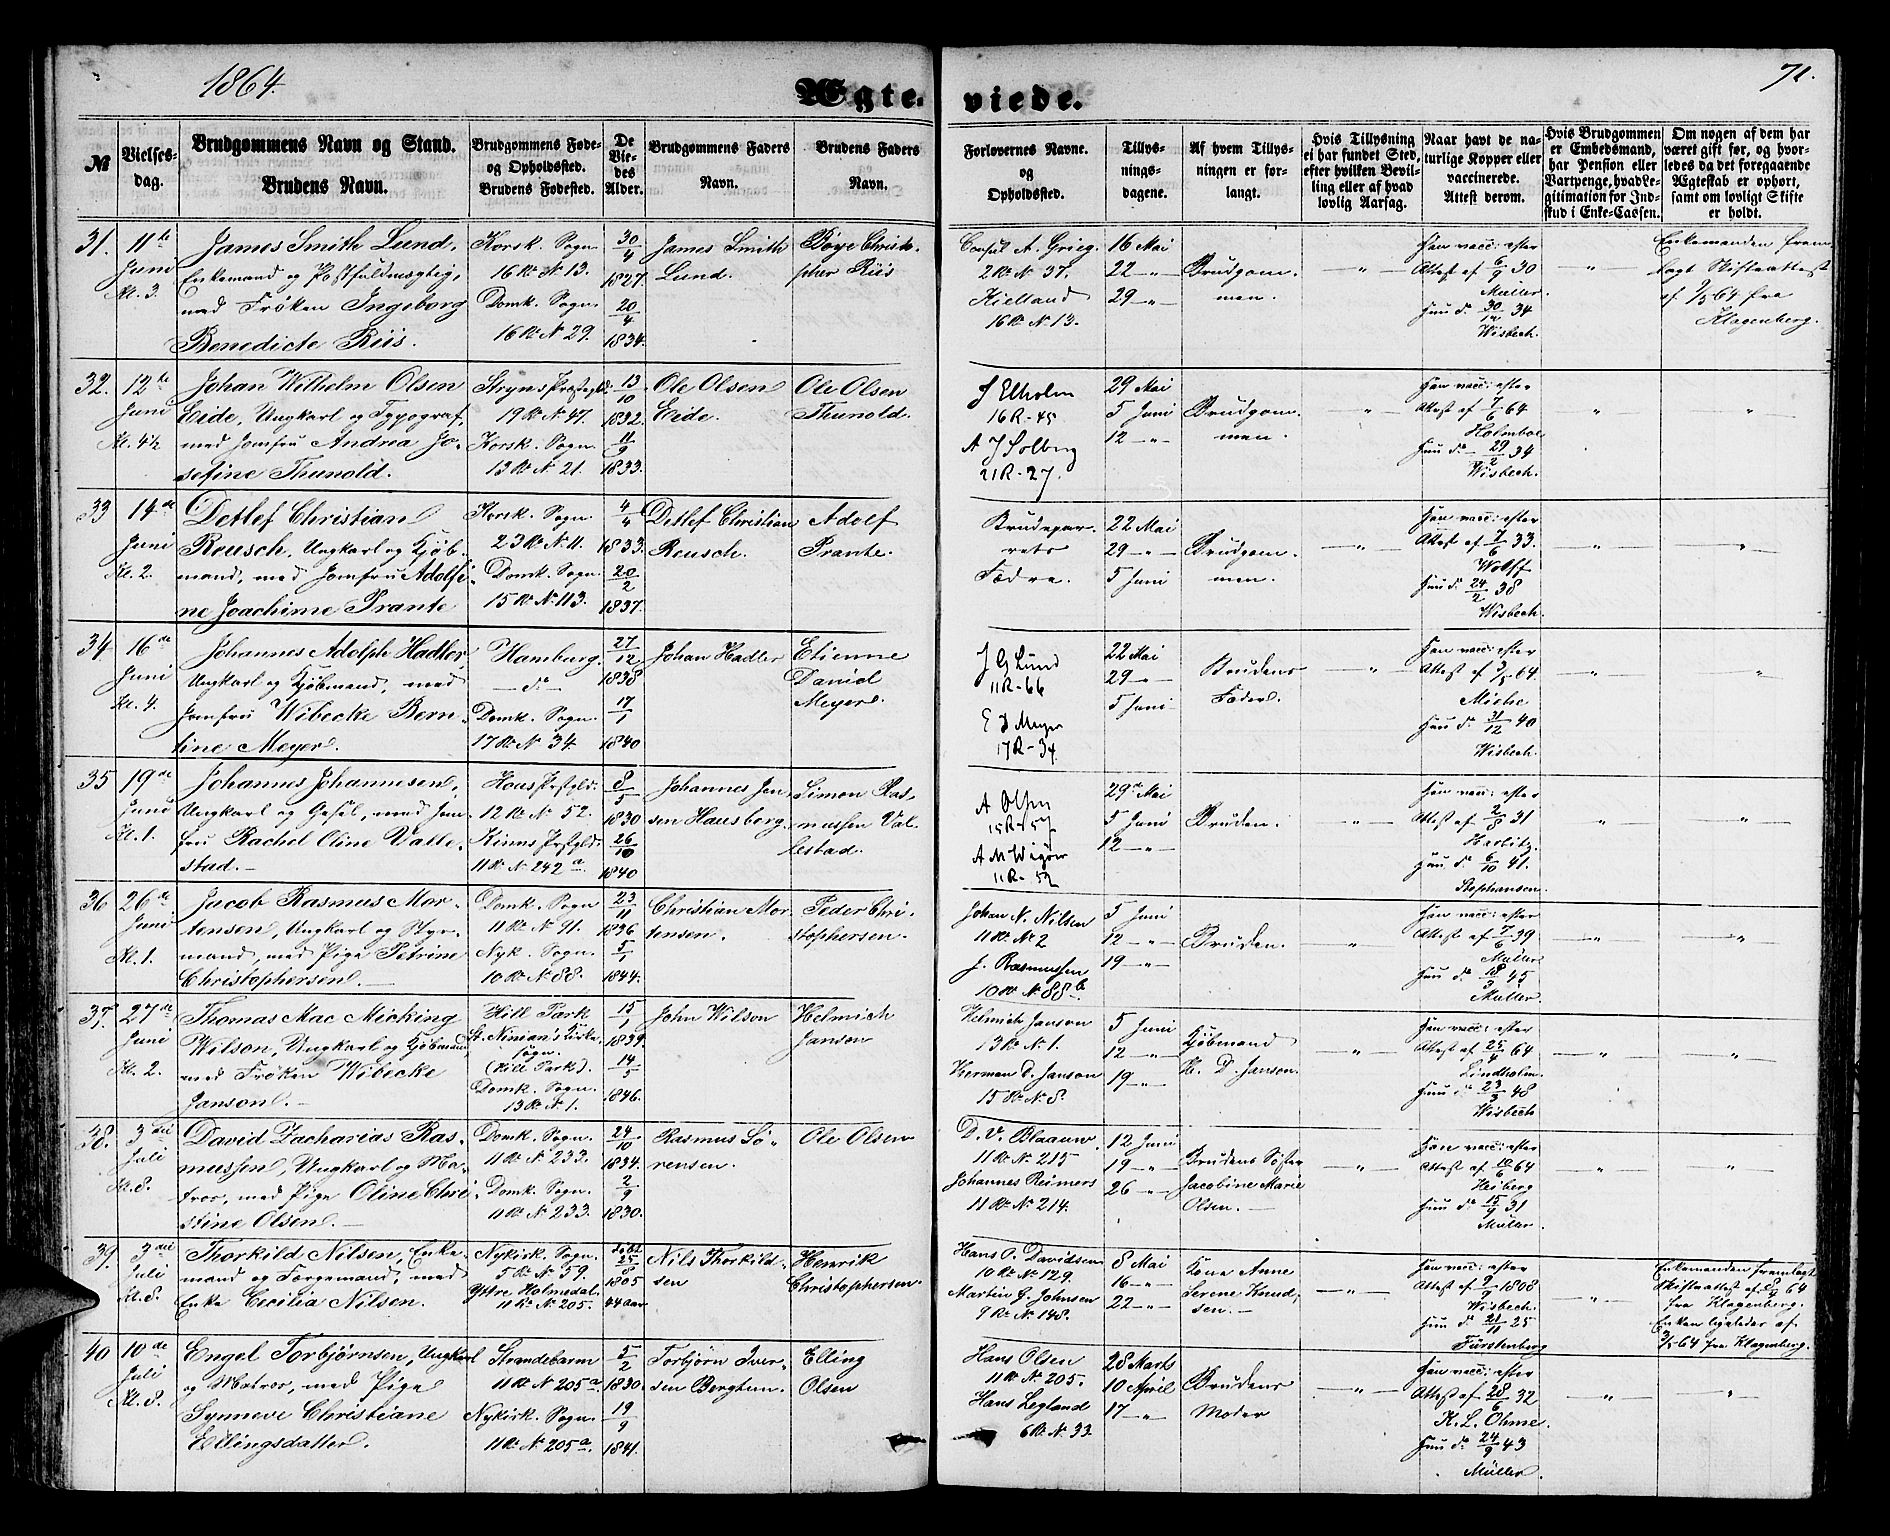 1864.
Ægte-
viede.
71.
№
Vielses-
dag.
Brudgommens Navn og Stand.
Brudens Navn.
Brudgommens Føde-
og Opholdssted.
Brudens Fødested.
De
Vie-
des
Alder.
Brudgommens Faders
Navn.
Brudens Faders
Navn.
Forlovernes Navne.
og
Opholdssted.
Tillys-
nings-
dagene.
Af hvem Tillys-
ningen er for-
langt.
Hvis Tillysning
ei har fundet Sted,
efter hvilken Bevil-
ling eller af hvad
lovlig Aarsag.
Naar havt de na-
turlige Kopper eller
vaccinerede.
Attest derom.
Hvis Brudgommen
er Embedsmand,
har Pension eller
Vartpenge, hvad Le-
gitimation for Ind-
skud i Enke-Cassen.
Om nogen af dem har
været gift før, og hvor-
ledes da det foregaaende
Ægteskab er ophørt,
samt om lovligt Skifte
er holdt.
31.
11te
Juni
Kl. 3.
James Smith Lund,
Enkemand og Postfuldmægtig,
med Frøken Ingeborg
Benedicte Riis.
Korsk. Sogn
16 R. N. 13.
Domk. Sogn.
16 R. N. 29.
30/4
1827.
20/4
1834.
James Smith
Lund.
Bøye Christo-
pher Riis
Consul A. Grieg.
2 R. N. 37.
Kielland
16 R. N. 13.
16 Mai
22 -"-
29 -"-
Brudgom-
men.
"
Han vacc: efter
Attest af 6/9 30
Müller.
Hun do 30/12 34
Wisbech.
"
Enkemanden frem-
lagt Skifteattest
af 9/5 64 fra
Klagenberg.
32.
12te
Juni
Kl. 4½
Johan Wilhelm Olsen
Eide, Ungkarl og Typograf,
med Jomfru Andrea Jo-
sefine Thunold.
Stryns Præstegld:
19 R. N. 47.
Korsk. Sogn.
13 R. N. 21.
13/10
1832.
11/9
1833.
Ole Olsen
Eide.
Ole Olsen
Thunold.
J Elholm
16 R - 45
A J Solberg
21 R - 27.
29 Mai
5 Juni
12 -"-
Brudgom-
men.
"
Han vacc: efter
Attest af 7/6 64
Holmboe
Hun do 29/2 34
Wisbech.
"
"
33
14de
Juni
Kl. 2.
Detlef Christian
Reusch, Ungkarl og Kjøb-
mand, med Jomfru Adolfi-
ne Joachime Prante
Korsk. Sogn.
23 R. N. 11.
Domk. Sogn.
15 R. N. 113.
4/4
1833.
20/2
1837.
Detlef Christian
Reusch.
Adolf
Prante.
Brudepar-
rets
Fædre.
22 Mai
29 -"-
5 Juni
Brudgom-
men.
-"-
Han vacc: efter
Attest af 7/6 33.
Wolff
Hun do 24/2 38
Wisbech.
"
"
34
16de
Juni
Kl. 4.
Johannes Adolph Hadler,
Ungkarl og Kjøbmand, med
Jomfru Wibecke Bern-
tine Meyer.
Hamburg.
-do-
Domk. Sogn.
17 R. N. 34
27/12
1838
17/1
1840
Johan Hadler
Etienne
Daniel
Meyer.
J G Lund
11 R - 66
E D Meyer
17 R - 34
22 Mai
29 -"-
5 Juni
Brudens
Fader.
"
Han vacc: efter
Hun do 31/12 40
Wisbech.
-"-
"
35
19de
Juni
Kl. 1.
Johannes Johannesen,
Ungkarl og Gesel, med Jom-
fru Rachel Oline Valle-
stad.-
Haus Præstgld.
12 R. N. 52.
Kinns Præstgld.
11 R. N. 242 a
8/5
1830
26/10
1840
Johannes Jen-
sen Hausberg.
Simon Ras-
mussen Val-
lestad.
A Olsen
15 R - 57
29de Mai
5 Juni
12 -"-
Bruden.
"
Han vacc: efter
Attest af 2/8 31
Hun do 6/10 41.
Stephansen.
"
"
36
26de
Juni
Kl. 1.
Jacob Rasmus Mor-
tensen, Ungkarl og Styr-
mand, med Pige Petrine
Christophersen.-
Domk. Sogn
11 R. N. 91.
Nyk. Sogn.
10 R. N. 88.
23/11
1836
5/1
1844.
Christian Mor-
tensen.
Peder Chri-
stophersen.
Johan N. Nilsen
11 R. N. 2
J. Rasmussen
10 R. N. 88 b
5 Juni
12 -"-
19 -"-
Bruden.
"
Han vacc: efter
Attest af 7/6 39
Müller
Hun do 18/3 45
Müller.
-"-
"
37.
27de
Juni
Kl. 2.
Thomas Mac Micking
Wilson, Ungkarl og Kjøbmand
med Frøken Wibecke
Janson.-
Hill Park
St. Ninian's Kirke
sogn.
(Hill Park).
Domk. Sogn.
13 R. N. 1.
15/1
1839.
14/5
1846.
John Wilson
Helmich
Janson
Helmich Janson
13 R. N. 1.
Herman D. Janson
15 R. N. 8.
5 Juni
12 -"-
19 -"-
Kjøbmand
H. D. Janson.
"
Han vacc: efter
Attest af 25/4 64
Lindholm.
Hun do 23/3 48
Wisbech
"
"
38.
3die
Juli
Kl. 8.
David Zacharias Ras-
mussen, Ungkarl og Ma-
tros, med Pige Oline Chri-
stine Olsen.-
Domk. Sogn.
11 R. N. 233.
Domk. Sogn.
11 R. N. 233.
24/10
1834.
2/9
1830.
Rasmus Sø-
rensen.
Ole Olsen
D. V. Blaauw
11 R. N. 215
Johannes Reimers
11 R. N. 214.
12 Juni
19 -"-
26 -"-
Brudens Søster
Jacobine Marie
Olsen.-
"
Han vacc: efter
Attest af 10/6 64
Heiberg
Hun do 15/9 31
Müller.
"
"
39.
3die
Juli
Kl. 8.
Thorkild Nilsen, Enke-
mand og Færgemand, med
Enke Cecilia Nilsen.
Nykirk. Sogn.
5 R. N. 59.
Yttre Holmedal.
11 R. N. 205.
25/8
1805
44 Aar
Nils Thorkild-
sen
Henrik
Christophersen
Hans O. Davidsen
10 R. N. 129.
Martin G. Johnsen
9 R. N. 148.
8 Mai
16 -"-
22 -"-
Kone Anne
Serene Knud-
sen.-
-"-
Han vacc: efter
Attest af 9/9 1808
Wisbech.
Hun do 21/11 25
Fürstenberg
"
Enkemanden fremlagt
Skifteattest af
fra Klagenberg.
Enken ligeledes af
fra Klagenberg.
40
10de
Juli
Kl. 8
Engel Torbjørnsen, Ungkarl
og Matros, med Pige
Synneve Christiane
Ellingsdatter.
Strandebarm
11 R. N. 205 a.
Nykirk. Sogn.
11 R. N. 205 a.
5/2
1830.
19/9
1841.
Torbjørn Iver-
sen Berghem.
Elling
Olsen
Hans Olsen
11 R. N. 205.
Hans Legland
6 R. N. 33
28 Marts
10 April
17 -"-
Brudens
Moder
-"-
Han vacc: efter
Attest af 28/6 32
K. L. Ohme.
Hun do 24/9 43
Müller.
"
"